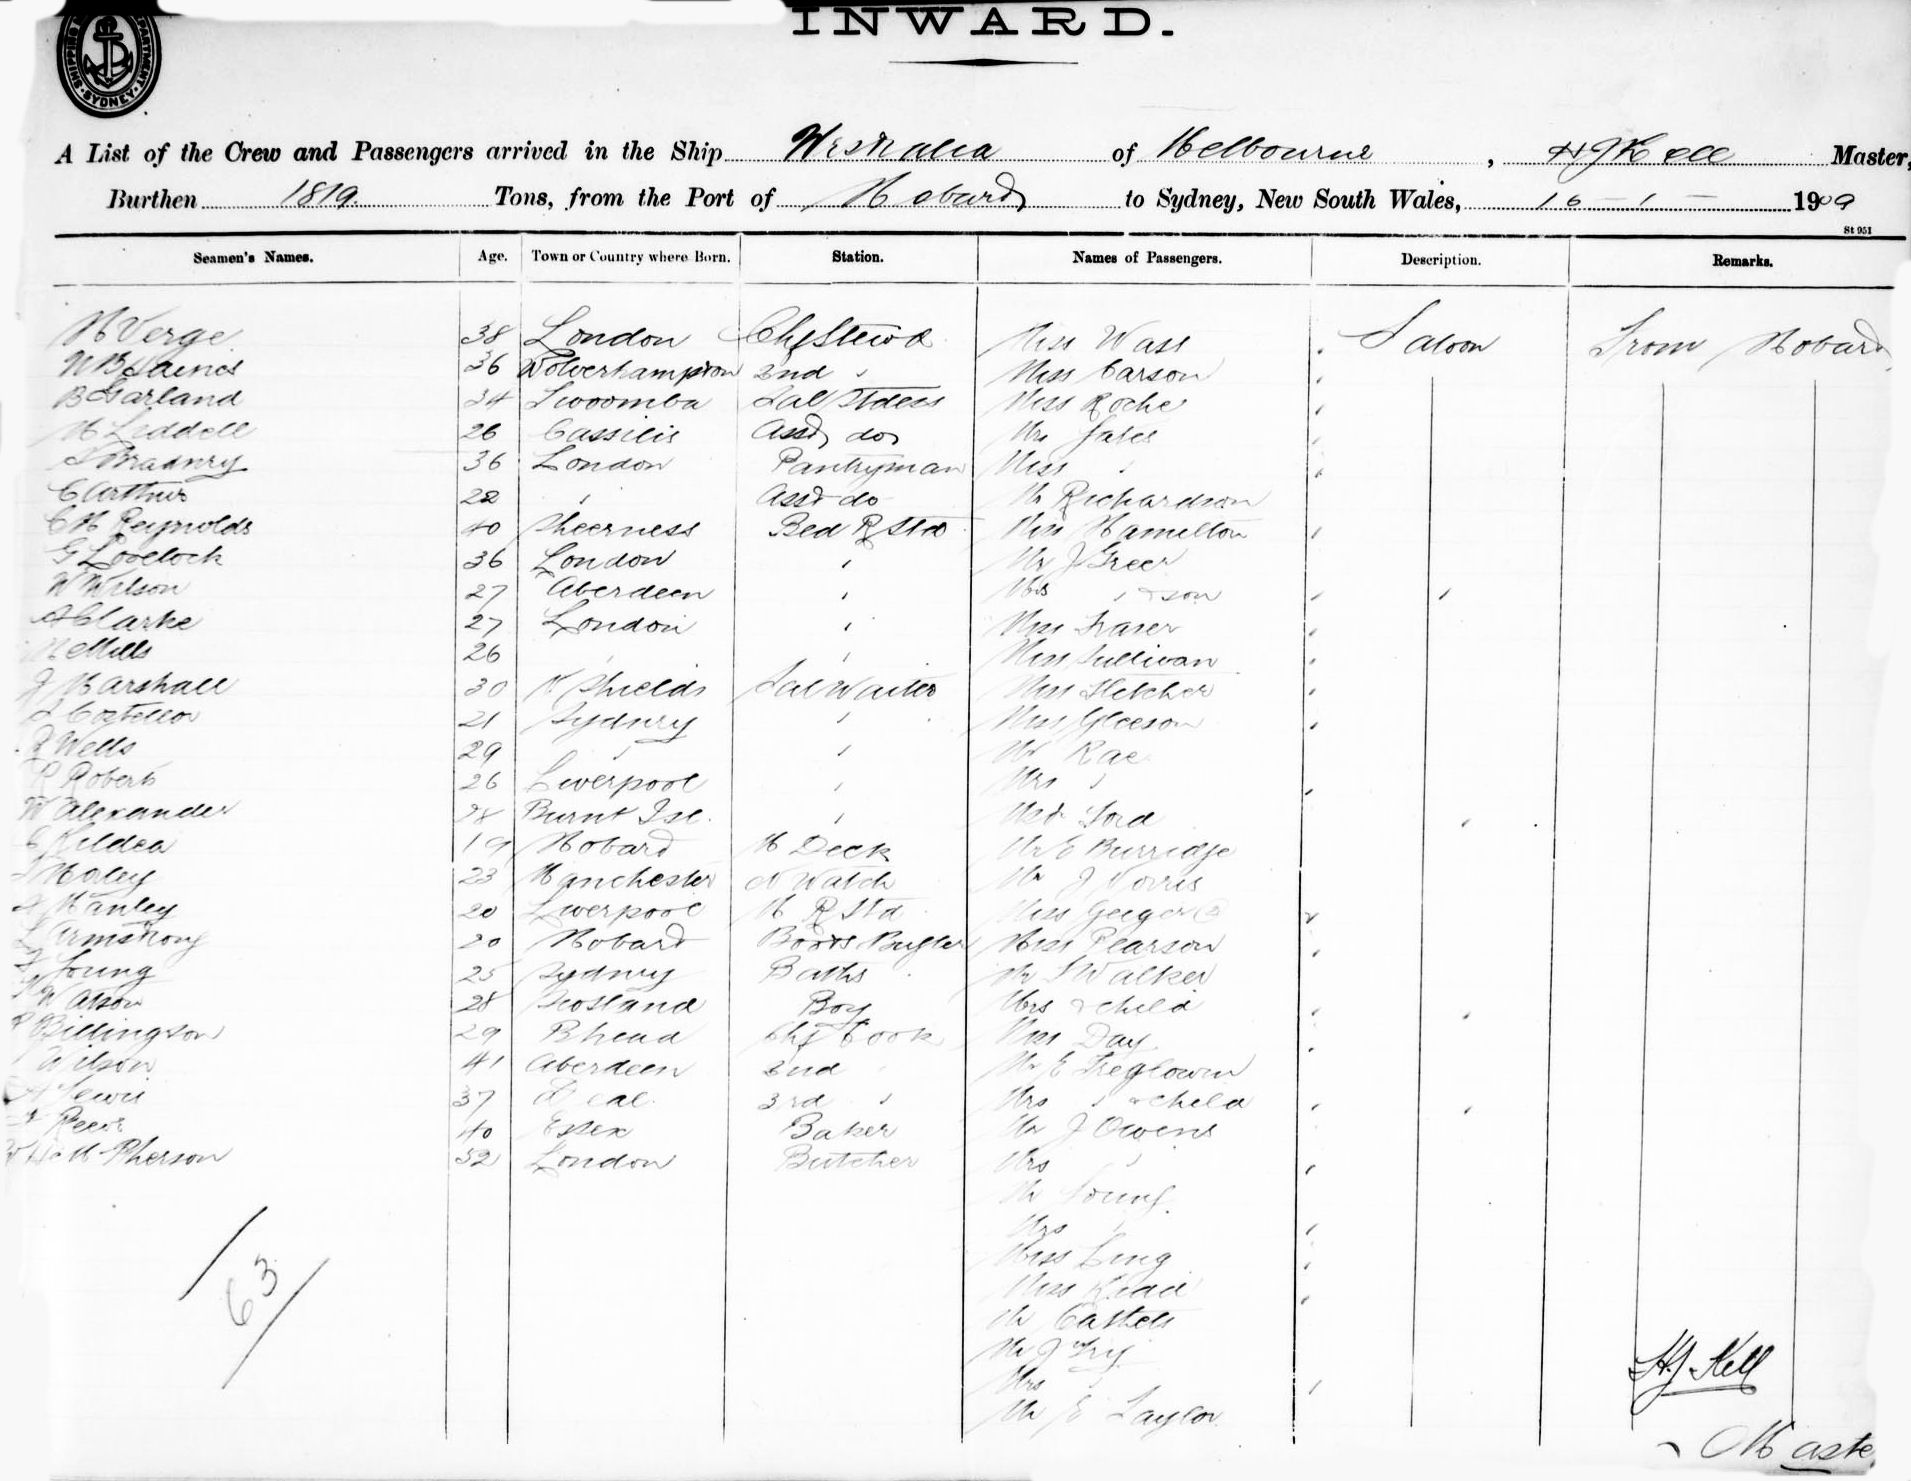 SHIPPING DEPARTMENT
SYDNEY
INWARD.
A List of the Crew and Passengers arrived in the Ship Westralia of Melbourne, H J Kell Master,
Burthen 1819. Tons, from the Port of Hobart to Sydney, New South Wales, 16 - 1 - 1909
St 951
Seamen's Names. Age. Town or Country where Born. Station. Names of Passengers. Description. Remarks.
H Verge 38 London Chf Stewd Miss Wass Saloon From Hobart
W B Haines 36 Wolverhampton 2nd " Miss Carson "
B Garland 34 Twoomba Sal Stdess Miss Roche "
M Liddell 26 Cassilis Asst do Mrs Yates "
Bradney 36 London Pantryman Miss " "
C Arthur 22 " Asst do Mr Richardson
C H Reynolds 40 Sheerness Bed R Std Miss Hamilton "
G Lovelock 36 London " Mr J Greer
W Wilson 27 Aberdeen " Mrs " & son " "
A Clarke 27 London " Miss Fraser "
Mills 26 " " Miss Sullivan "
J Marshall 30 N Shields Sal Waiter Miss Fletcher "
Costello 21 Sydney " Miss Gleeson "
R Wells 29 " " Mr Rae
R Roberts 26 Liverpool " Mrs " "
W Alexander Burnt Isl. " Ford "
C Kildea 19 Hobart M Deck Mr E Burridge
Morley 23 Manchester N Watch Mr J Norris
Manley 20 Liverpool M R Std Miss Geiger (2) "
L Armstrong 20 Hobart Boots Bugler Miss Pearson "
Young 25 Sydney Baths Mr Walker
Watson 28 Scotland Boy Mrs & child " "
Billington 29 B head Chf Cook Miss Day "
Wilson 41 Aberdeen 2nd " Mr E Treglown
Lewis 37 Deal 3rd " Mrs " & child " "
Reeve 40 Essex Baker Mr J Owens
McPherson 32 London Butcher Mrs " "
Mr Young
Mrs " "
Miss King "
Miss Kidd "
Mr
Mr J Fry
Mrs " "
Mr E Taylor
63
H J Kell
Maste